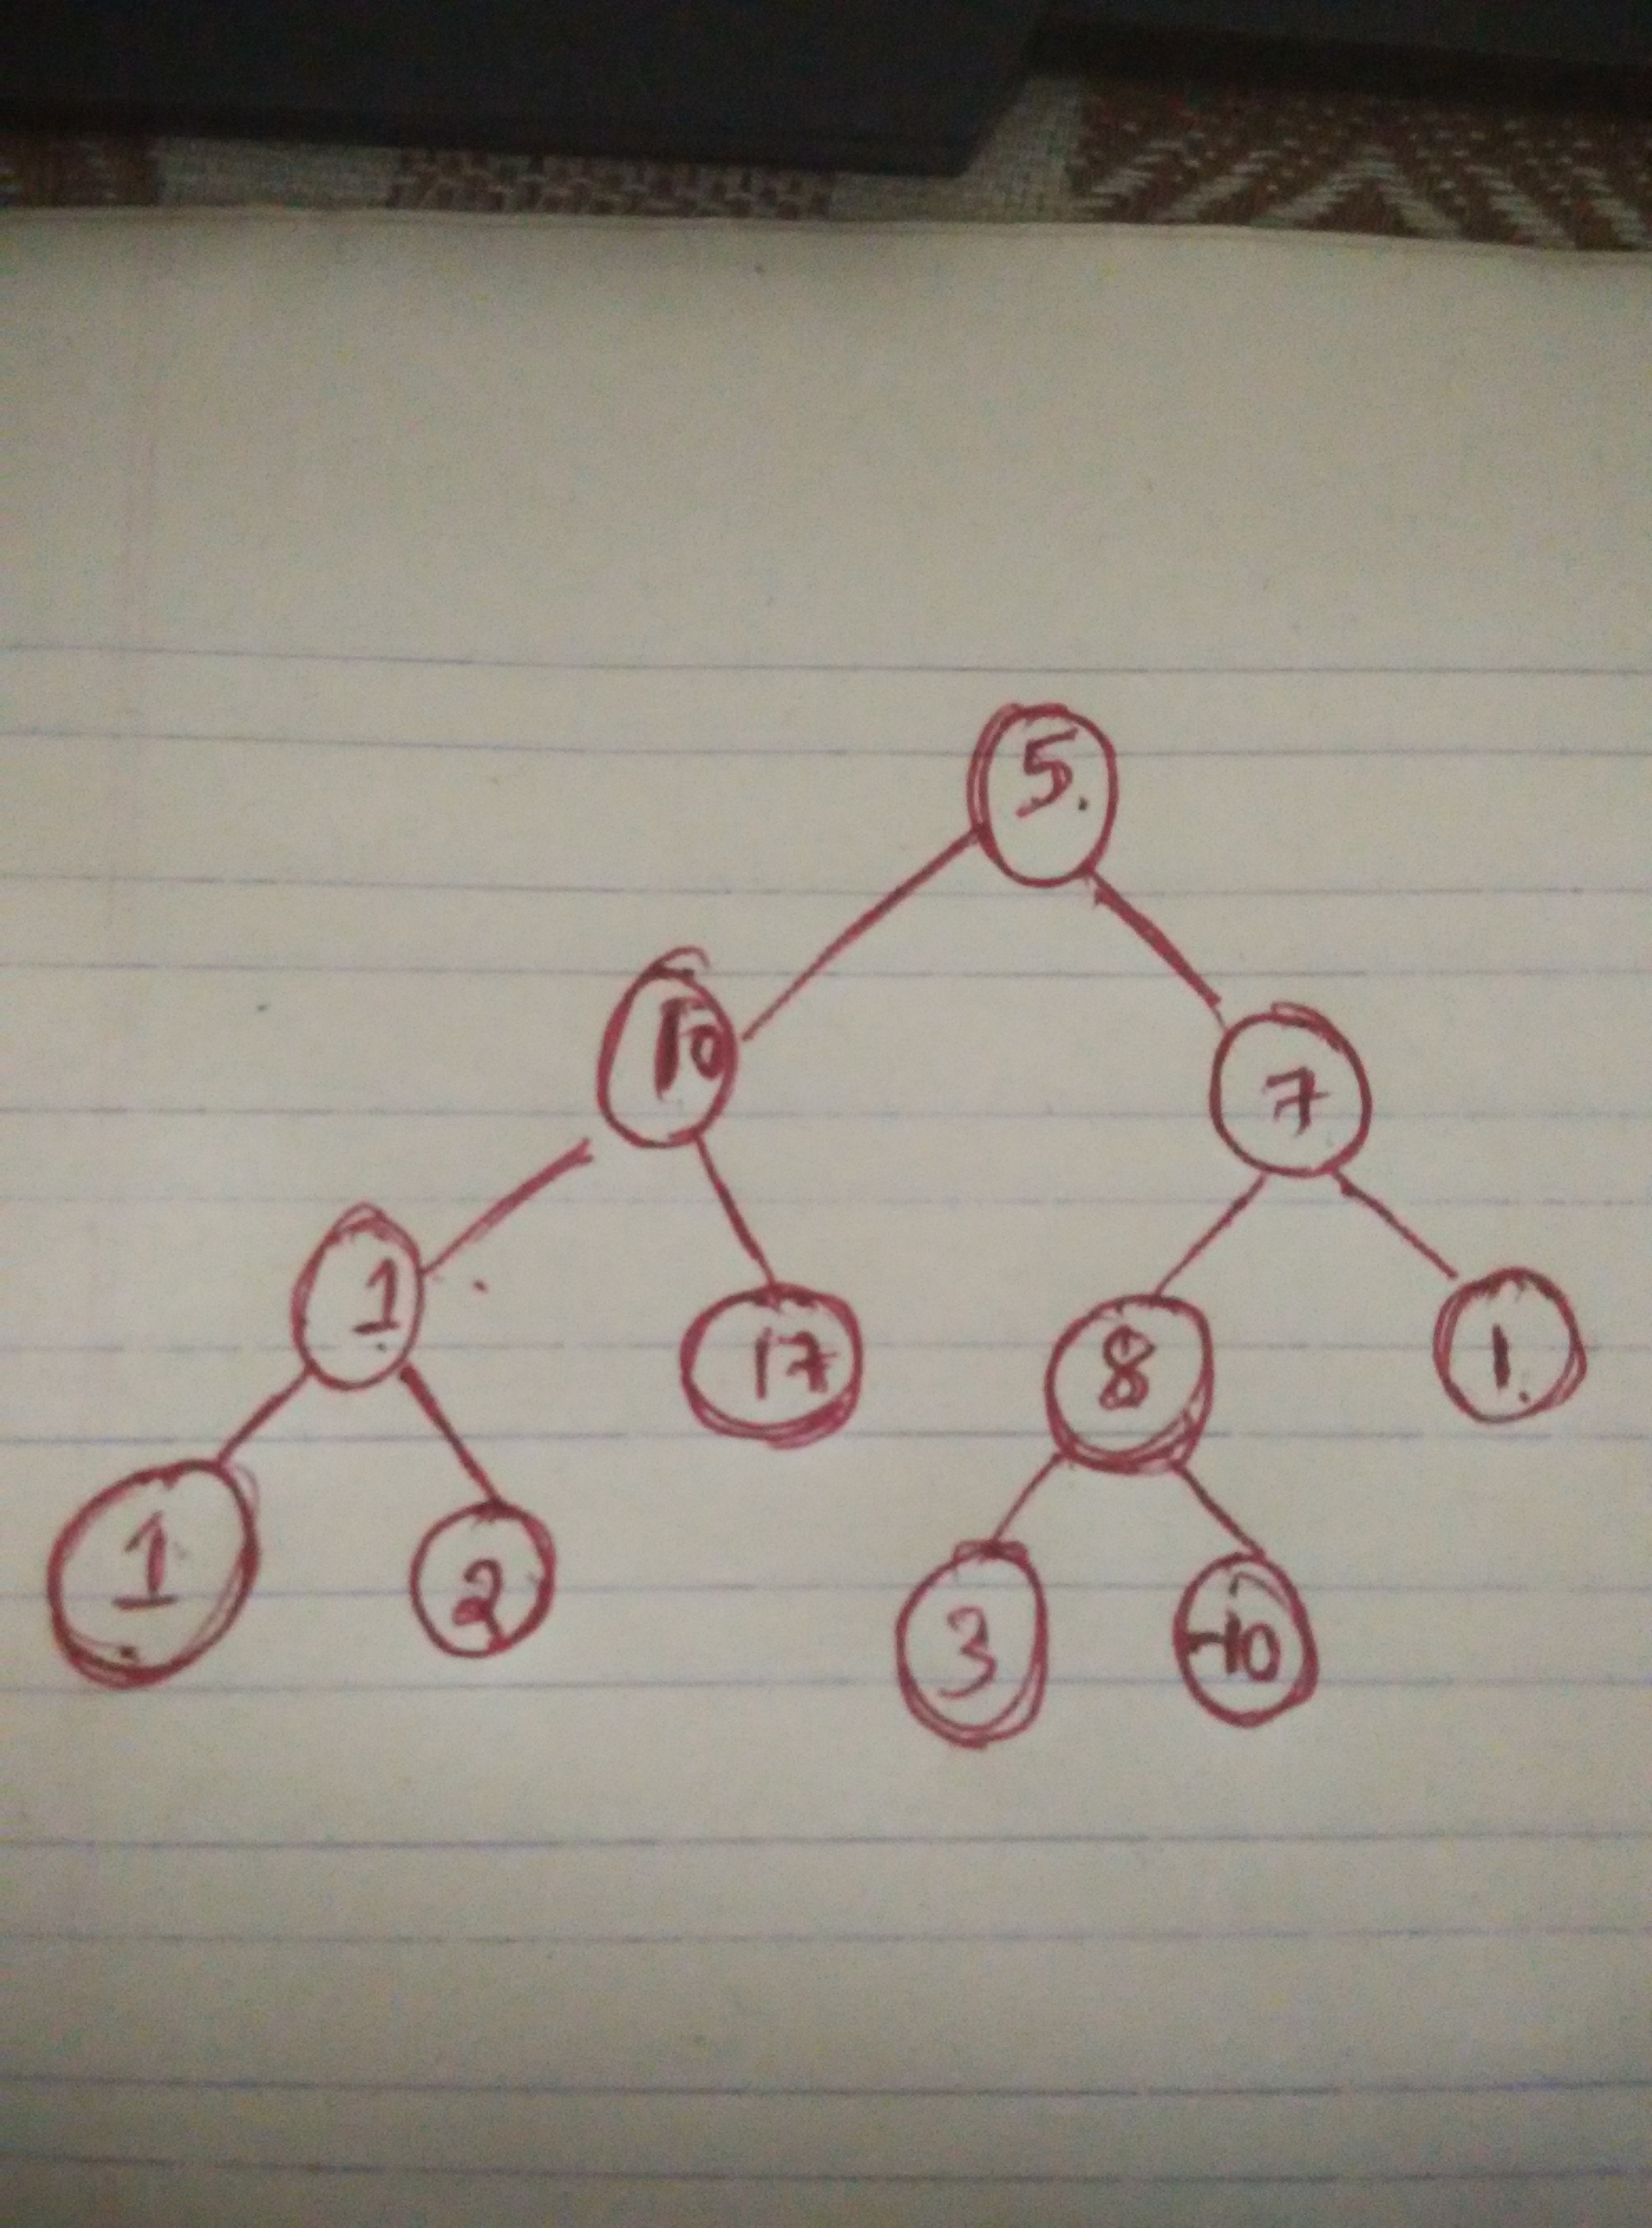 5
10 7
1 17 8 1
1 2 3 -10